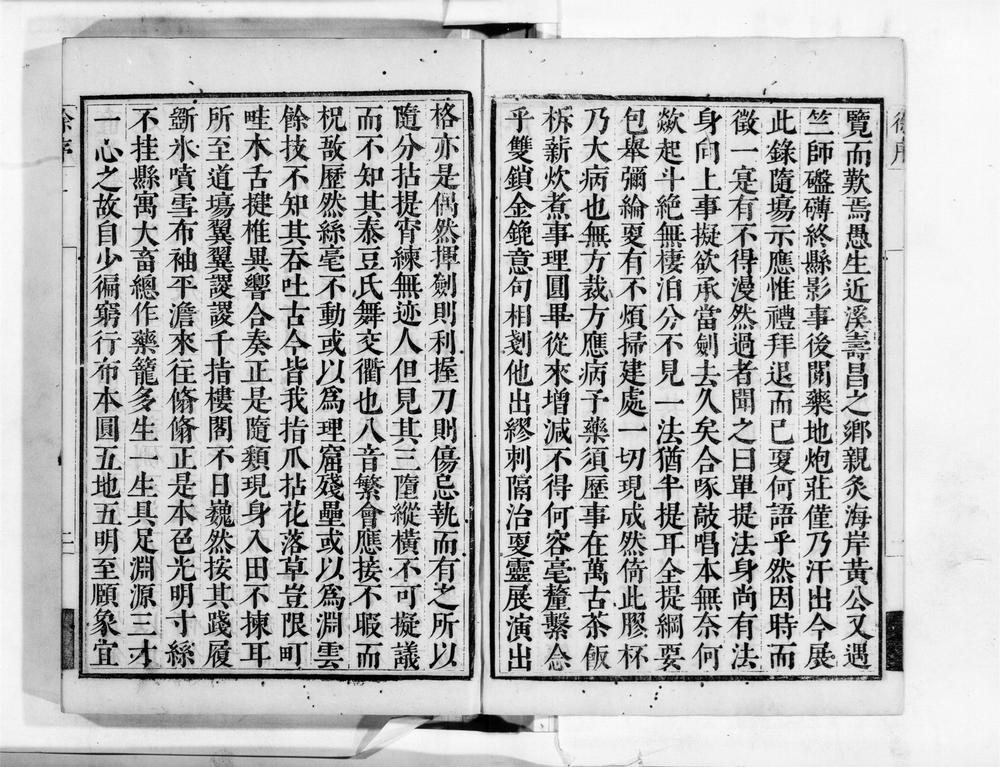 覽而歎焉愚生近溪壽昌之鄉親炙海岸黃公又遇
竺師礚礴終縣影事後閱藥地炮莊僅乃汗出今展
此錄隨場示應惟禮拜退而已更何語乎然因時而
徵一寔有不得漫然過者聞之曰單提法身尚有法
身向上事擬欲承當劍去久矣合啄敲唱本無奈何
歘起斗絕無棲泊分不見一法猶半提耳全提綱要
包舉彌綸更有不煩掃建處一切現成然倚此膠杯
乃大病也無方裁方應病予藥須歷事在萬古茶飯
柝薪炊煮事理圓畢從來增減不得何容毫釐繫念
乎雙鎖金鎚意句相剗他出繆刺隔治更靈展演出
格亦是偶然揮劍則利握刀則傷忌執而有之所以
隨分拈提宵練無迹人但見其三墮縱橫不可擬議
而不知其泰豆氏舞交衢也八音繁會應接不暇而
柷敔歷然絲毫不動或以為理窟殘壘或以為淵雲
餘技不知其吞吐古今皆我指爪拈花落草豈限町
畦木舌揵椎異響合奏正是隨類現身入田不揀耳
所至道場翼翼謖謖千指樓閣不日巍然按其踐履
斷氷噴雪布袖平澹來往翛翛正是本色光明寸絲
不挂縣寓大畜總作藥籠多生一生具足淵源三才
一心之故自少徧窮行布本圓五地五明至頤象宜